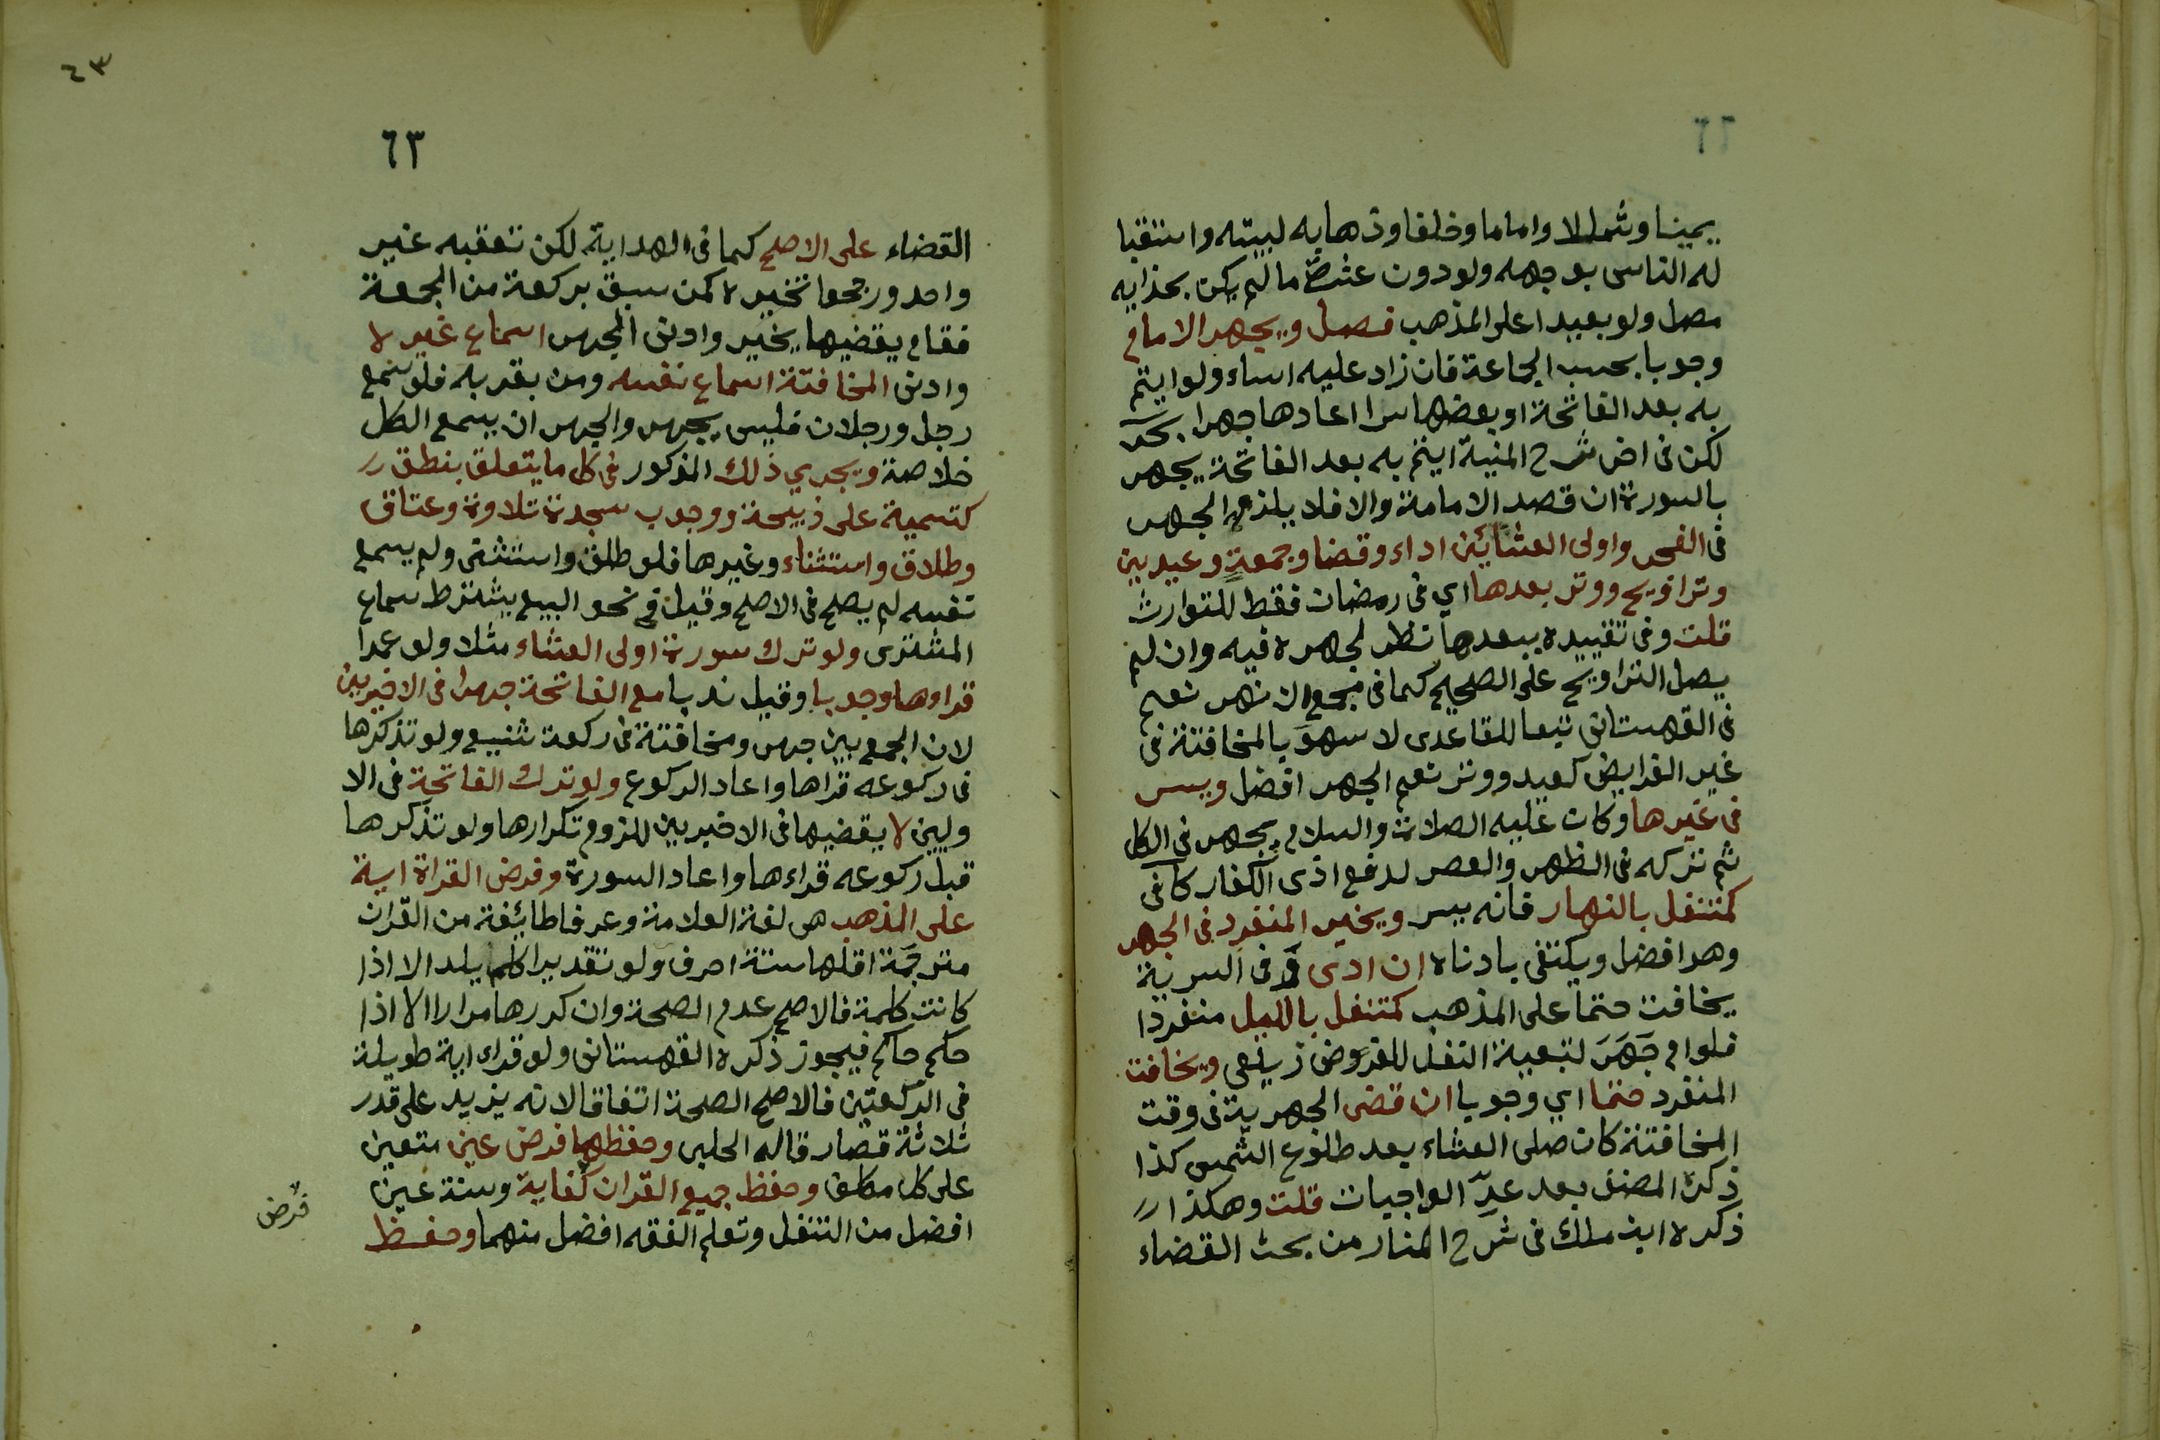 ٦٢
يمينا وشمالا واماما وخلفا وذهابه لبيته واستقبا
له الناس بوجهه ولو دون عشرة ما لم يكن بحذايه
مصل ولو بعيدا على المذهب فصل ويجهر الامام
وجوبا بحسب الجماعة فان زاد عليه اساء ولو ايتم
به بعد الفاتحة او بعضها سرا اعادها جهرا بحر
لكن فى اخر شرح المنية ايتم به بعد الفاتحة يجهر
بالسورة ان قصد الامامة والا فلا يلزمه الجهر
فى الفجر واولى العشائين اداء وقضا وجمعة وعيدين
وتراويح ووتر بعدها اي فى رمضان فقط للتوارث
قلت وفى تقييده ببعدها نظر لجهره فيه وان لم
يصل التراويح على الصحيح كما فى مجمع الانهر نعم
فى القهستانى تبعا للقاعدى لا سهو بالمخافتة فى
غير الفرايض كعيد ووتر نعم الجهر افضل ويسر
فى غيرها وكان عليه الصلاة والسلام يجهر فى الكل
ثم تركه فى الظهر والعصر لدفع اذى الكفار كافى
كمتنفل بالنهار فانه يسر ويخير المنفرد فى الجهر
وهو افضل ويكتفى بادناه ان ادى وفى السرية
يخافت حتما على المذهب كمتنفل بالليل منفردا
فلو ام جَهَرَ لتبعية النفل للفرض زيلعى ويخافت
المنفرد حتما اي وجوبا ان قضى الجهرية فى وقت
المخافتة كان صلى العشاء بعد طلوع الشمس كذا
ذكره المصنف بعد عدّ الواجبات قلت وهكذا
ذكره ابن ملك فى شرح المنار من بحث القضاء
٤٣
٦٣
القضاء على الاصح كما فى الهداية لكن تعقبه غير
واحد ورجحوا تخيره كمن سبق بركعة من الجمعة
فقام يقضيها يخير وادنى الجهر اسماع غيره
وادنى المخافتة اسماع نفسه ومن بقربه فلو سمع
رجل ورجلان فليس بجهر والجهر ان يسمع الكل
خلاصة ويجري ذلك المذكور فى كل ما يتعلق بنطق
كتسمية على ذبيحة ووجوب سجدة تلاوة وعتاق
وطلاق واستثناء وغيرها فلو طلق واستثنى ولم يسمع
نفسه لم يصح فى الاصح وقيل فى نحو البيع يشترط سماع
المشترى ولو ترك سورة اولى العشاء مثلا ولو عمدا
قراوها وجوبا وقيل ندبا مع الفاتحة جهرا فى الاخيريين
لان الجمع بين جهر ومخافتة فى ركعة شنيع ولو تذكرها
فى ركوعه قراها واعاد الركوع ولو ترك الفاتحة فى الا
وليين لا يقضيها فى الاخيريين للزوم تكرارها ولو تذكرها
قبل ركوعه قراءها واعاد السورة وفرض القراة اية
على المذهب هى لغة العلامة وعرفا طائفة من القران
مترجمة اقلها ستة احرف ولو تقديرا كلم يلد الا اذا
كانت كلمة فالاصح عدم الصحة وان كررها مرارا الا اذا
حكم حاكم فيجوز ذكره القهستانى ولو قراء اية طويلة
فى الركعتين فالاصح الصحة اتفاقا لانه يزيد على قدر
ثلاثة قصار قاله الحلبى وحفظها فرض عين متعين
على كل مكلف وحفظ جميع القران كفاية وسنة عين
افضل من التنفل وتعلم الفقه افضل منهما وحفظ
فرض